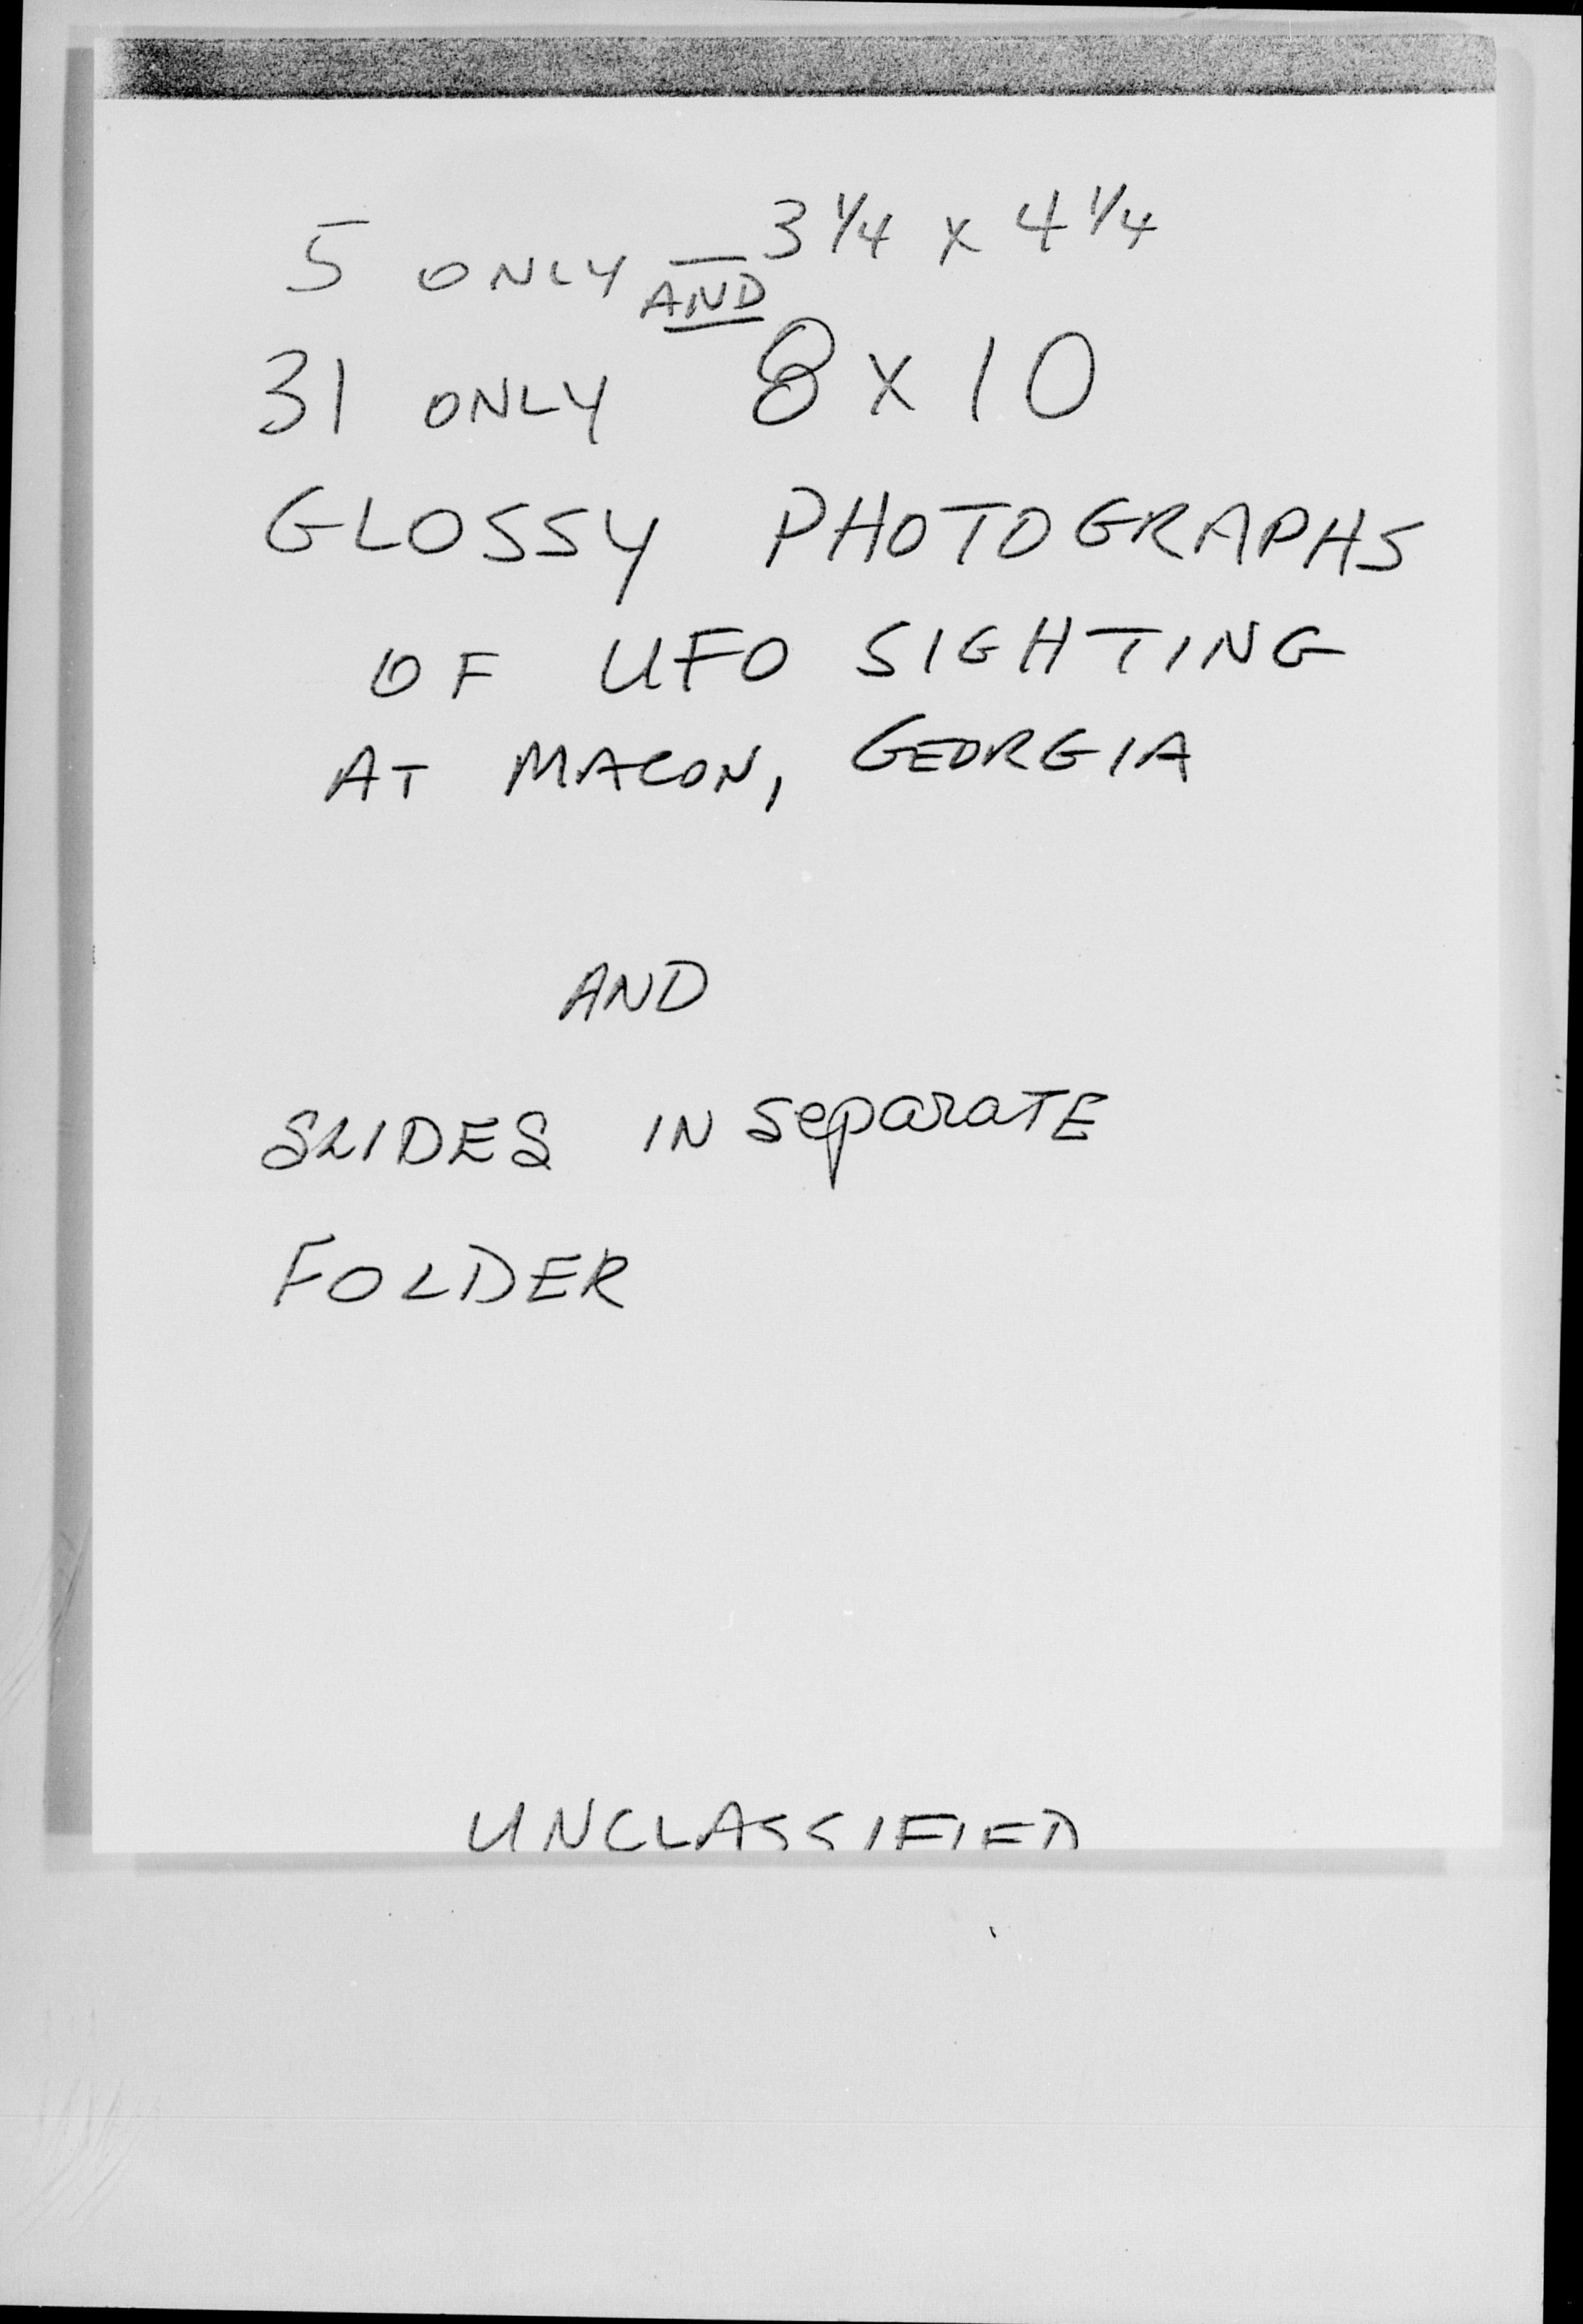 5 ONLY — 3 1/4 x 4 1/4
AND
31 ONLY 8 x 10
GLOSSY PHOTOGRAPHS
OF UFO SIGHTING
AT MACON, GEORGIA
AND
SLIDES IN SeparaTE
FOLDER
UNCLASSIFIED